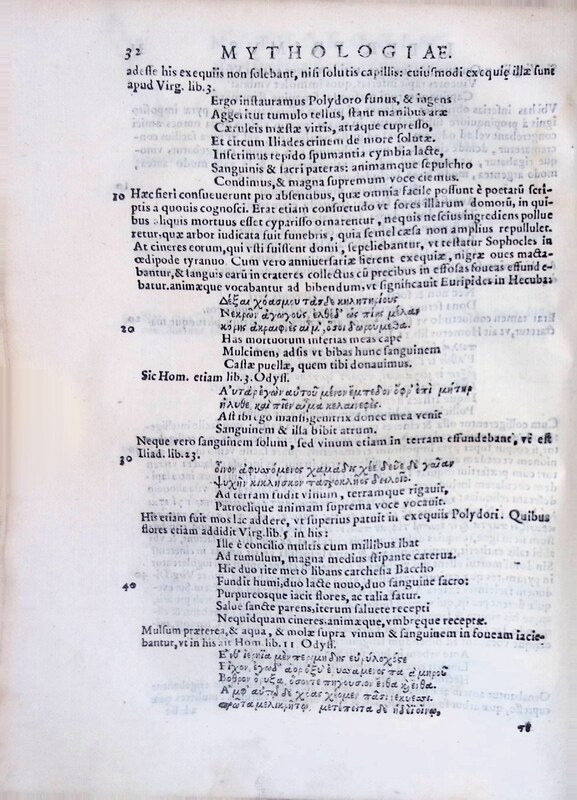 32 MYTHOLOGIAE.
adesse his exequiis non solebant, nisi solutis capillis: cuiusmodi exequię illæ sunt
apud Virg. lib.3.
Ergo instauramus Polydoro funus, & ingens
Aggeritur tumulo tellus, stant manibus aræ
Cæruleis mæstæ vittis, atraque cupresso,
Et circum Iliades crinem de more solutæ.
Inferimus tepido spumantia cymbia lacte,
Sanguinis & sacri pateras: animamque sepulchro
Condimus, & magna supremum voce ciemus.
10 Hæc fieri consueuerunt pro absentibus, quæ omnia facile possunt è poetarū scri-
ptis a quouis cognosci. Erat etiam consuetudo vt fores illarum domorū, in qui-
bus aliquis mortuus esset cyparisso ornarentur, nequis nescius ingrediens pollue
retur, quæ arbor iudicata fuit funebris, quia semel cæsa non amplius repullulet.
At cineres eorum, qui vsti fuissent domi, sepeliebantur, vt testatur Sophocles in
œdipode tyranno Cum vero anniuersariæ fierent exequiæ, nigræ oues macta-
bantur, & sanguis earū in crateres collectus cū precibus in effossas foueas effunde-
batur. animæque vocabantur ad bibendum, vt significauit Euripides in Hecuba:
Δέξαι χοάς μου τάσδε κηλητηρίους
20 Νεκρῶν ἀγωγούς, ἐλθὲ δ' ὡς πίῃς μέλαν
κόρης ἀκραιφνὲς αἷμ', ὅ σοι δωρούμεθα.
Has mortuorum inferias meas cape
Mulcimen, adsis vt bibas hunc sanguinem
Castæ puellæ, quem tibi donauimus.
Sic Hom. etiam lib.3. Odyss.
Αὐτὰρ ἐγὼν αὐτοῦ μένον ἔμπεδον ὄφρ' ἐπὶ μήτηρ
ἤλυθε, καὶ πίεν αἷμα κελαινεφές.
Ast ibi ego mansi genitrix donec mea venit
Sanguinem & illa bibit atrum.
Neque vero sanguinem solum, sed vinum etiam in terram effundebant, vt est
30 Iliad. lib.23.
οἶνον ἀφυσσόμενος χαμάδις χέε δεῦε δὲ γαῖαν
ψυχὴν κικλήσκων πατροκλῆος δειλοῖο.
Ad terram fudit vinum, terramque rigauit,
Patroclique animam suprema voce vocauit.
His etiam fuit mos lac addere, vt superius patuit in exequiis Polydori. Quibus
flores etiam addidit Virg. lib. 5 in his:
Ille è concilio multis cum millibus ibat
Ad tumulum, magna medius stipante caterua.
Hic duo rite mero libans carchesia Baccho
40 Fundit humi, duo lacte nouo, duo sanguine sacro:
Purpureosque iacit flores, ac talia fatur.
Salue sancte parens, iterum saluete recepti
Nequidquam cineres. animæque, vmbreque receptæ.
Mulsum præterea, & aqua, & molæ supra vinum & sanguinem in foueam iacie-
bantur, vt in his ait Hom. lib. 11 Odyss.
Ἔνθ' ἱερήϊα μὲν περιμήδης εὐρύλοχός τε
Εἶχον, ἐγὼ δ' ἄορ ὀξὺ ἐρυσσάμενος παρὰ μηροῦ
Βόθρον ὄρυξα, ὅσον τε πηγούσιον ἔνθα καὶ ἔνθα.
Ἀμφ' αὐτῷ δὲ χοὰς χεόμην πᾶσι νεκύεσσι.
πρῶτα μελικρήτῳ, μετέπειτα δὲ ἡδέϊ οἴνῳ,